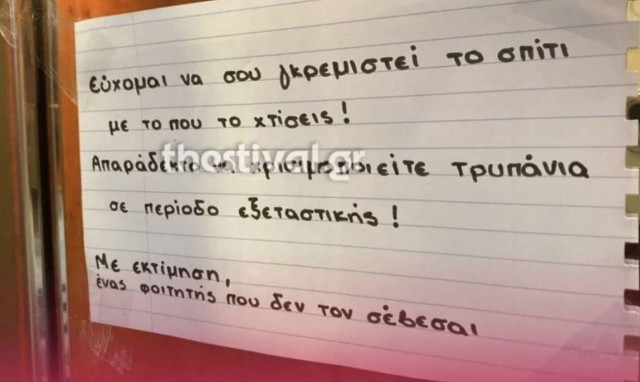 Εύχομαι να σου γκρεμιστεί το σπίτι
με το που το χτίσεις!
Απαράδεκτο να χρισιμοποιείτε τρυπάνια
σε περίοδο εξεταστικής!
Με εκτίμηση,
ένας φοιτητής που δεν τον σέβεσαι
thestival.gr